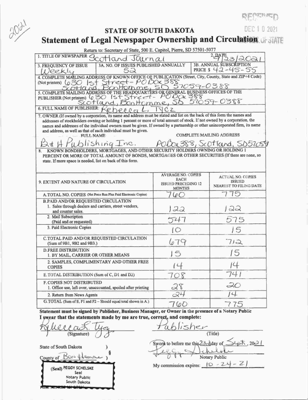 2021
RECEIVED
DEC 10 2021
STATE OF SOUTH DAKOTA
Statement of Legal Newspaper Ownership and Circulation
OF STATE
Return to: Secretary of State, 500 E. Capitol, Pierre, SD 57501-5077
1. TITLE OF NEWSPAPER Scotland Journal
2. DATE 9/23/2021
3. FREQUENCY OF ISSUE Weekly
3A. NO. OF ISSUES PUBLISHED ANNUALLY 52
3B. ANNUAL SUBSCRIPTION PRICE $ 42-45-55
4. COMPLETE MAILING ADDRESS OF KNOWN OFFICE OF PUBLICATION (Street, City, County, State and ZIP+4 Code)
(Not printers) 630 1st Street - PO Box 388
Scotland, Bon Homme, SD 57059-0388
5. COMPLETE MAILING ADDRESS OF THE HEADQUARTERS OF THE GENERAL BUSINESS OFFICE OF THE
PUBLISHER (Not printers) 630 1st Street - PO Box 388
Scotland, Bon Homme, SD 57059-0388
6. FULL NAME OF PUBLISHER: Rebecca Tycz
7. OWNER (If owned by a corporation, its name and address must be stated and list on the back of this form the names and
addresses of stockholders owning or holding 1 percent or more of total amount of stock. If not owned by a corporation, the
names and addresses of the individual owners must be given. If owned by a partnership or other unincorporated firm, its name
and address, as well as that of each individual must be given.
FULL NAME
COMPLETE MAILING ADDRESS
B & H Publishing Inc.
PO Box 388, Scotland, SD 57059
8. KNOWN BONDHOLDERS, MORTGAGES, AND OTHER SECURITY HOLDERS OWNING OR HOLDING 1
PERCENT OR MORE OF TOTAL AMOUNT OF BONDS, MORTGAGES OR OTHER SECURITIES (If there are none, so
state. If more space is needed, list on back of this form.
9. EXTENT AND NATURE OF CIRCULATION
AVERAGE NO. COPIES EACH ISSUE PRECEDING 12 MONTHS
ACTUAL NO. COPIES ISSUE NEAREST TO FILING DATE
A. TOTAL NO. COPIES 760 775
B. PAID AND/OR REQUESTED CIRCULATION
1. Sales through dealers and carriers, street vendors, and counter sales 122 122
2. Mail Subscription (Paid and or requested) 547 575
3. Paid Electronic Copies 10 15
C. TOTAL PAID AND/OR REQUESTED CIRCULATION
(Sum of 9B1, 9B2 and 9B3.) 679 712
D. FREE DISTRIBUTION
1. BY MAIL, CARRIER OR OTHER MEANS 15 15
2. SAMPLES, COMPLIMENTARY AND OTHER FREE COPIES 14 14
E. TOTAL DISTRIBUTION (Sum of C, D1 and D2) 708 741
F. COPIES NOT DISTRIBUTED
1. Office use, left over, unaccounted, spoiled after printing 28 20
2. Return from News Agents 24 14
G. TOTAL (Sum of E, F1 and F2 - Should equal total shown in A) 760 775
Statement must be signed by Publisher, Business Manager, or Owner in the presence of a Notary Public
I swear that the statements made by me are true, correct, and complete:
Rebecca Tycz Publisher
(Signature) (Title)
State of South Dakota )
Sworn to before me this day of Sept. 2021
County of Bon Homme ) Peggy Schelske
Notary Public
(Seal) PEGGY SCHELSKE
Seal
Notary Public
South Dakota
My commission expires: 10-24-21